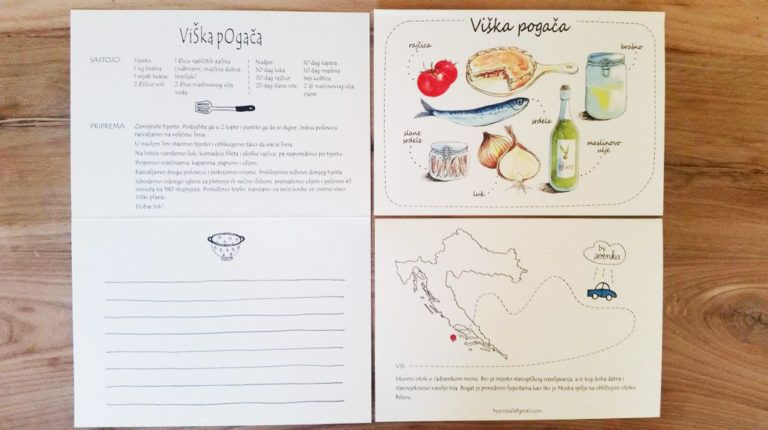 Viška pogača
SASTOJCI:
Tijesto:
1 kg brašna
1 svježi kvasac
2 žličice soli
1 žlica različitih začina
(ružmarin, majčina dušica,
voda
Nadjev:
50 dag luka
50 dag rajčice
25 dag slane ribe
10 dag kapara
10 dag maslina
bez koštica
2 dl maslinovog ulja
papar
PRIPREMA:
Zamijesite tijesto. Podijelite ga u 2 lopte i pustite ga da se digne. Jednu polovicu
razvaljamo na veličinu lima.
U nauljen lim stavimo tijesto i oblikujemo tako da viri iz lima.
Na listiće narežemo luk, komadiće fileta i ploške rajčice, pa rasporedimo po tijestu.
Pospemo maslinama, kaparima, paprom i uljem.
Razvaljamo drugu polovicu i pokrijemo smjesu. Preklopimo rubove donjeg tijesta
minuta na 180 stupnjeva. Poslužimo toplo, narezano na veće kocke uz crveno vino
Viški plavac.
Dobar tek!
Viška pogača
rajčica
brašno
srdela
slane
srdele
maslinovo
ulje
luk
by
zrinka
VIS
otok u Jadranskom moru. Bio je mjesto starogrčkog naseljavanja, a iz tog doba datira i
starovjekovno naselje Issa. Bogat je prirodnim ljepotama kao što je Modra spilja na obližnjem otoku
Biševu.